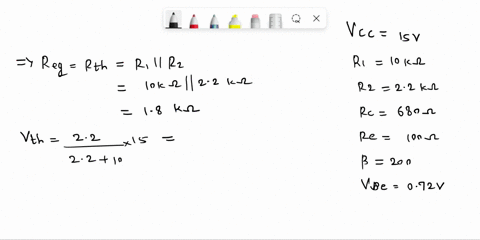 => Req = Rth = R1 || R2
= 10kΩ || 2.2 kΩ
= 1.8 kΩ
Vth = 2.2 / 2.2 + 10 × 15 =
VCC = 15V
R1 = 10kΩ
R2 = 2.2 kΩ
Rc = 680Ω
Re = 100Ω
β = 200
VBe = 0.72V